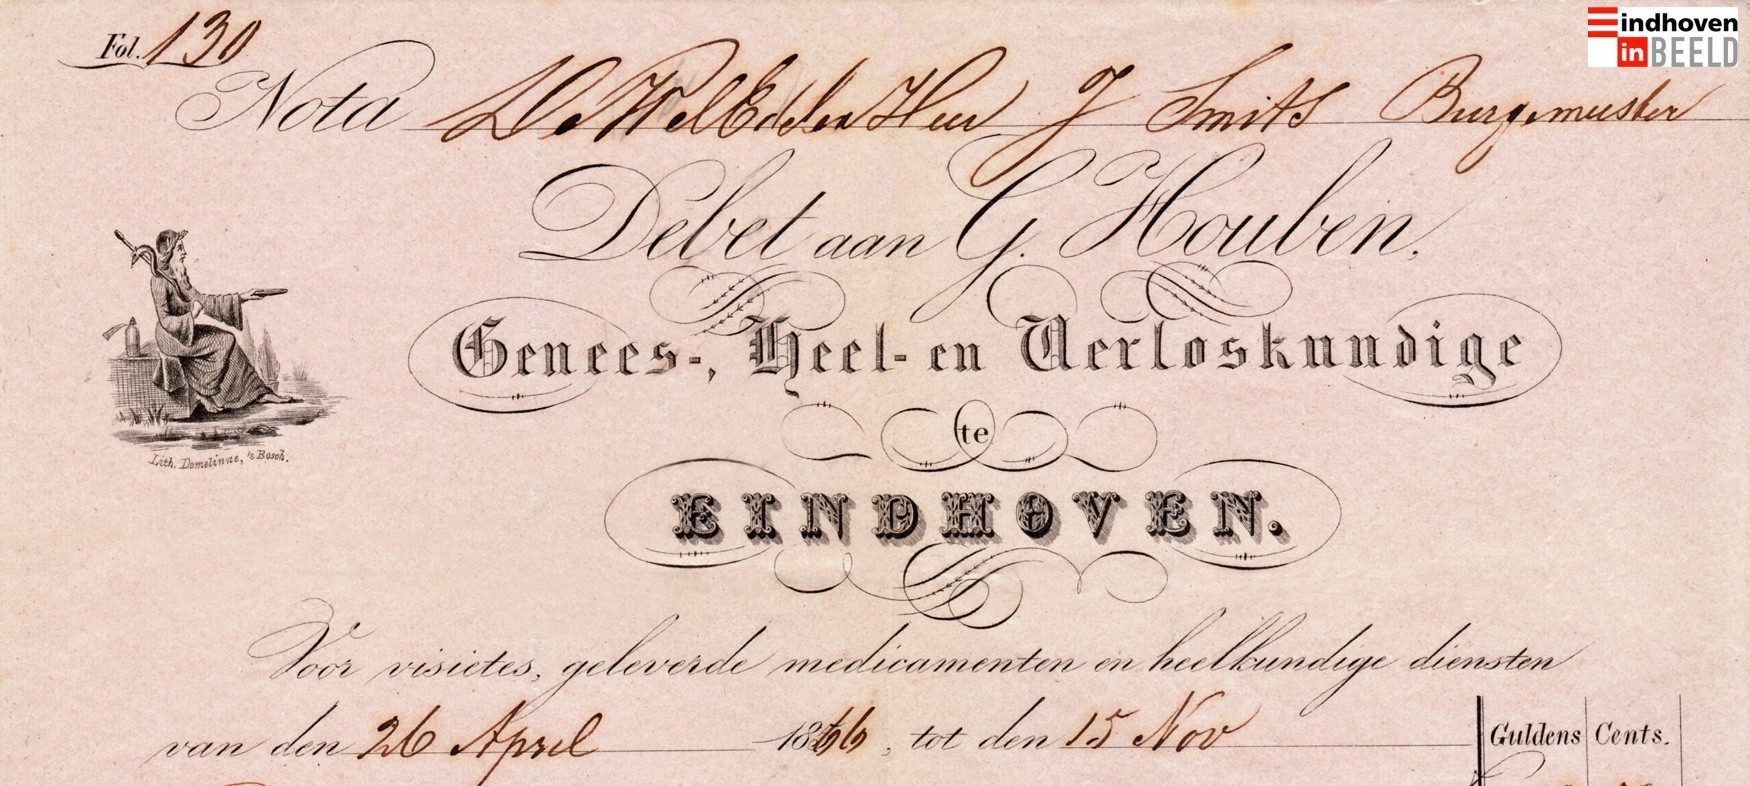 Eindhoven
in BEELD
Fol. 130
Nota De WelEdelen Heer J Smits Burgemeester
Debet aan G. Houben.
Genees-, Heel- en Verloskundige
te
EINDHOVEN.
Lith. Domelinne, 's Bosch.
Voor visietes, geleverde medicamenten en heelkundige diensten
van den 26 April 1866, tot den 15 Nov
Guldens Cents.